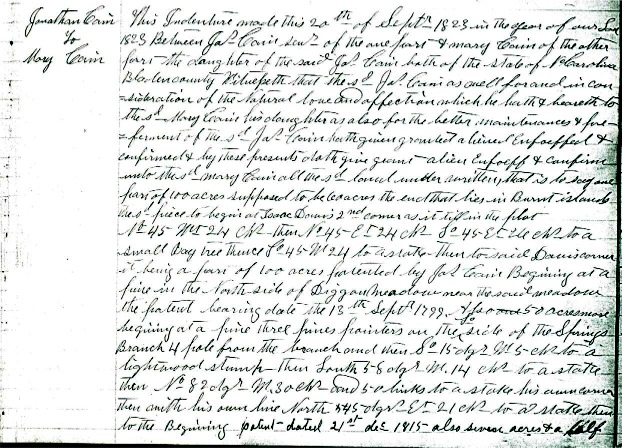 Jonathan Cain
to
Mary Cain
This Indenture made this 20th of Septr 1823 in the year of our Lord
1823 Between Jas. Cain senr. of the one part & mary Cain of the other
part the daughter of the said Jas. Cain both of the state of No Carolina
Bladen county Witnesseth that the sd Jas. Cain as well for and in con
=sideration of the natural love and affection which he hath & beareth to
the sd Mary Cain his daughter as also for the better maintenance & pre
=ferment of the sd Jas. Cain hath given granted aliened Enfoeffed &
confirmed & by these presents doth give grant alien Enfoeff & confirm
unto the sd mary Cain all the sd land under written, that is to say one
part of 100 acres supposed to be 60 acres the end that lies in Burnt island
the sd piece to begin at Isaac Davis 2nd corner as it is in the plot
No 45 Wt 24 chs then No 45 Et 24 chs So 45 Et 26 chs to a
small Bay tree thence So 45 Wt 24 to a stake then to said Davis corner
it being a part of 100 acres patented by Jas. Cain Begining at a
pine in the North side of Diggon meadow near the said meadow
the patent bearing date the 13th Septr 1799. Also one 50 acres more
begining at a pine three pines pointers on the So side of the Springs
Branch 4 pole from the branch and then So 15 dgr Wt 5 chs to a
lightwood stump then South 58 dgr W. 14 chs to a stake
then No 82 dgr W. 30 chs and 50 links to a stake his own corner
then with his own line North 45 dgr Et 21 chs to a stake then
to the Begining patent dated 21st dec 1815 also seven acres & a half